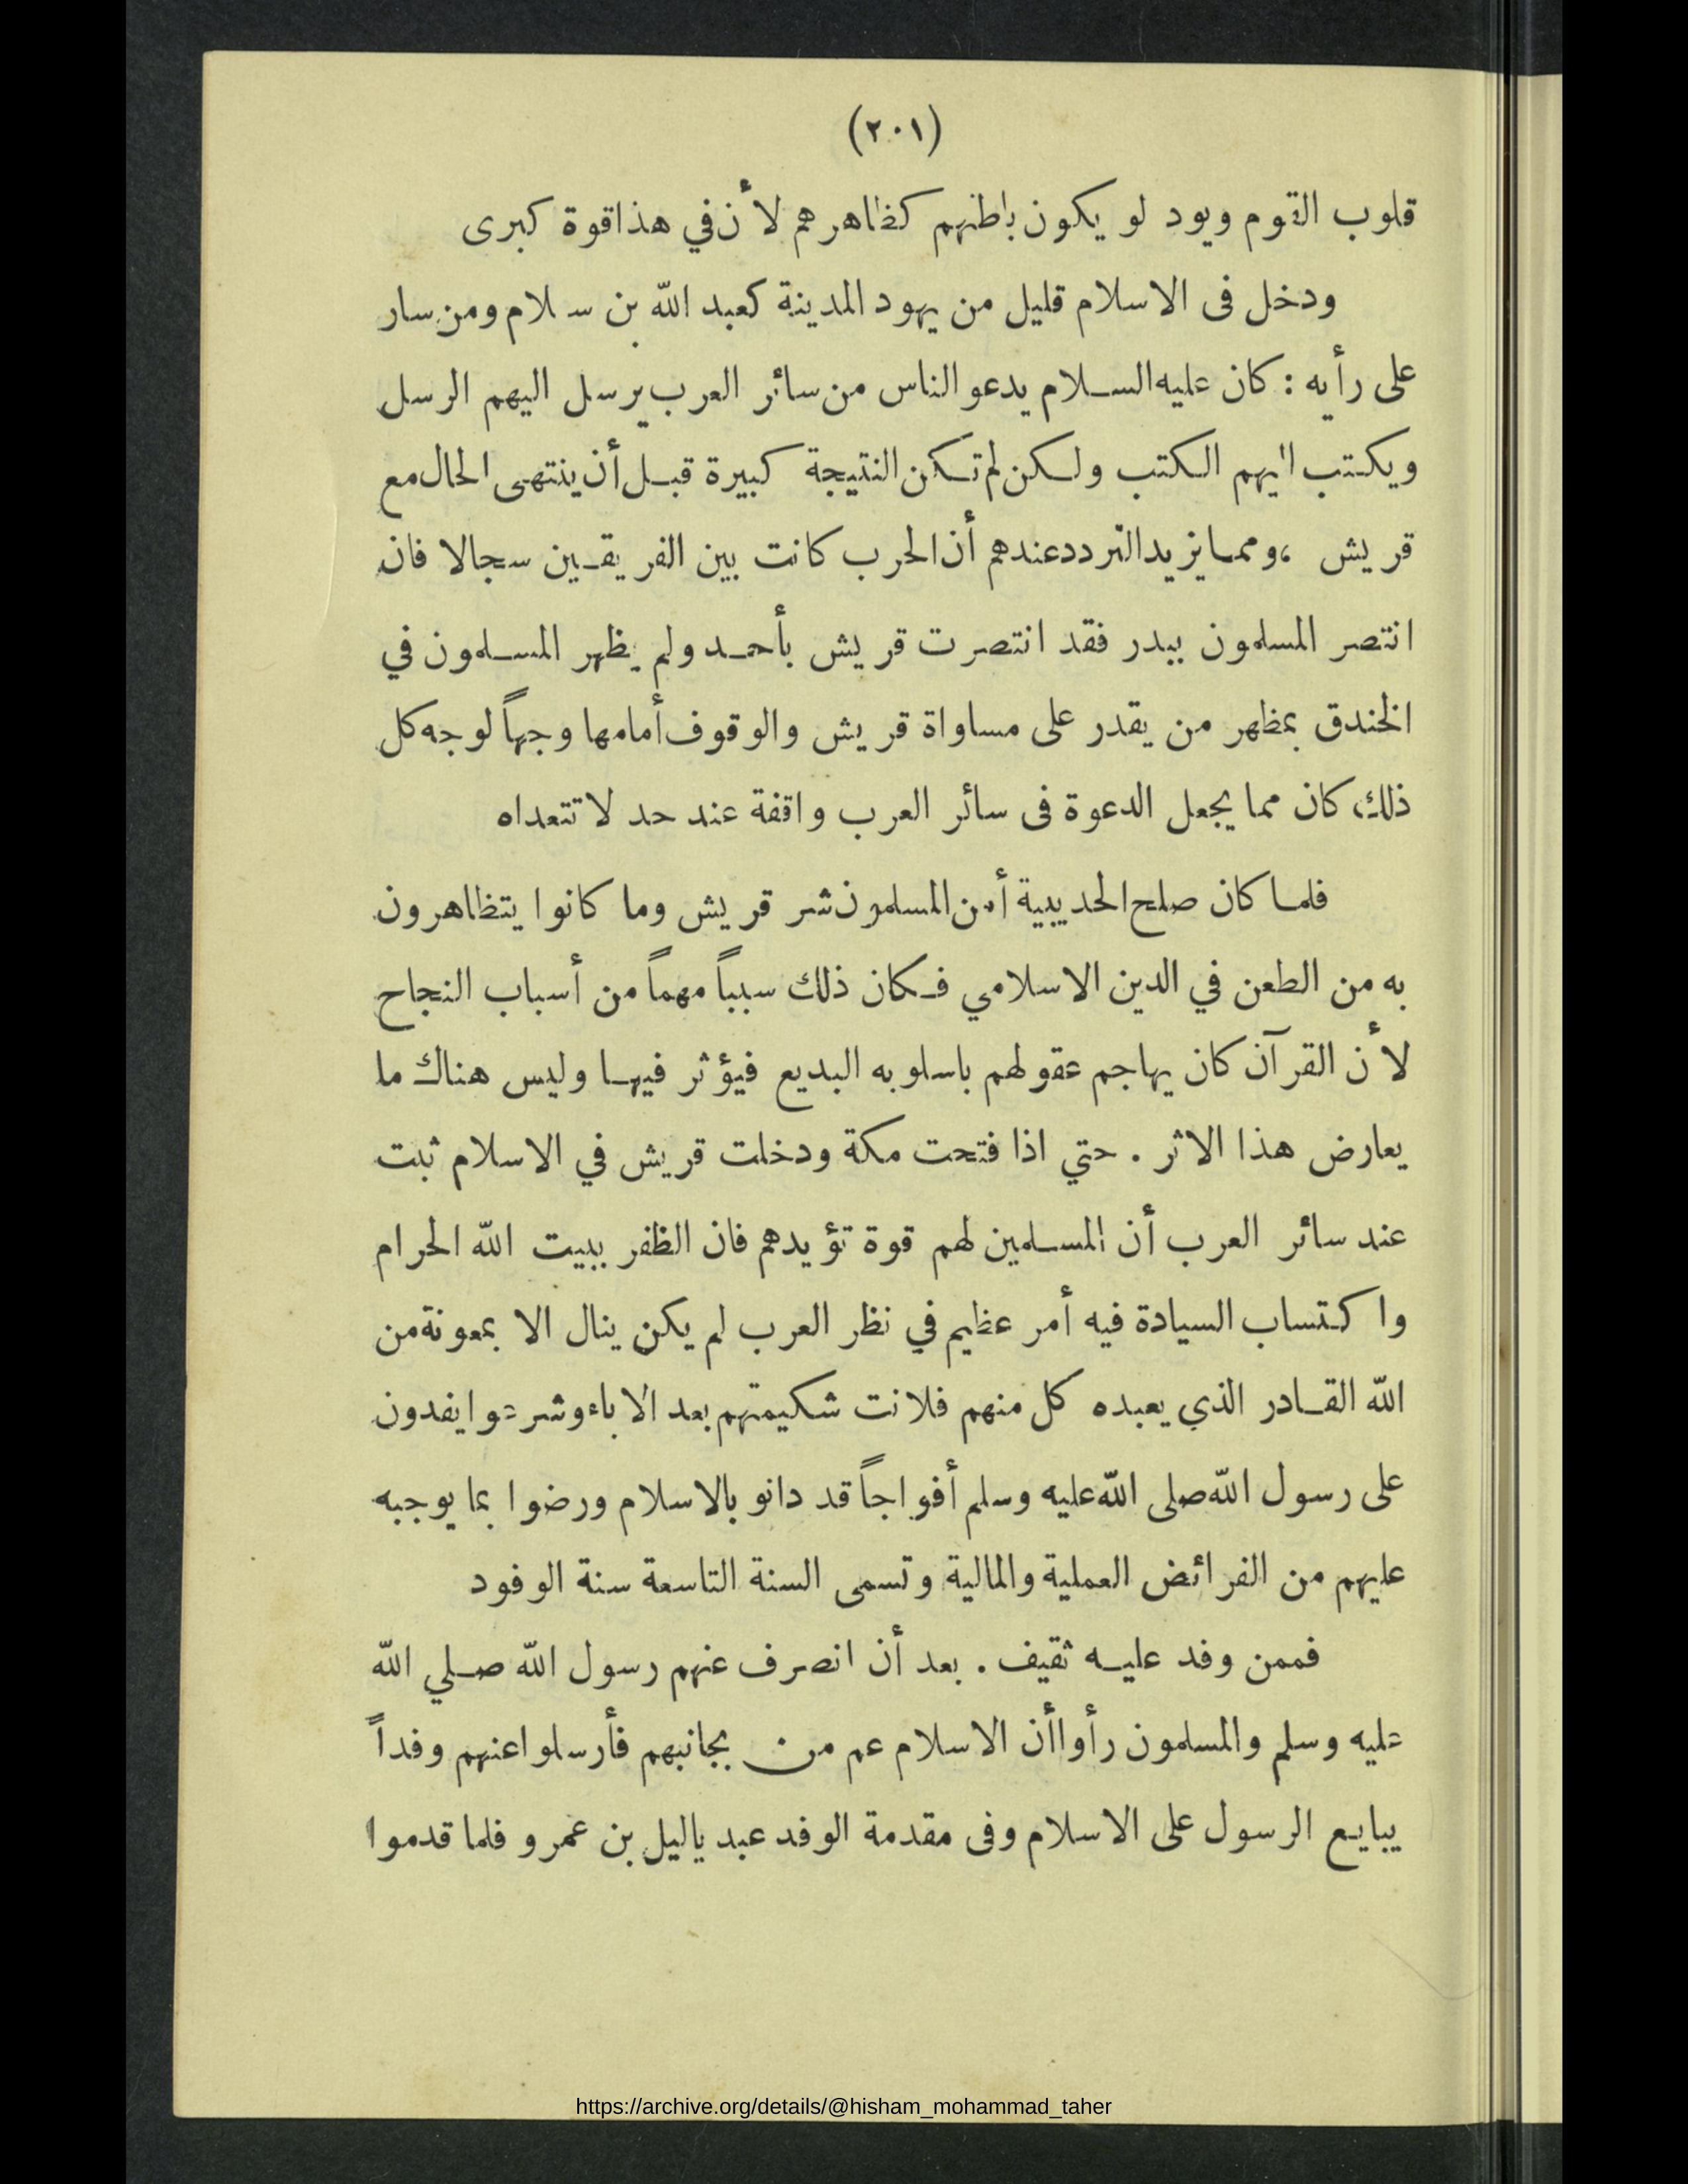 (٢٠١)
قلوب القوم ويود لو يكون باطنهم كظاهرهم لأن في هذا قوة كبرى
ودخل فى الاسلام قليل من يهود المدينة كعبد الله بن سلام ومن سار
على رأيه : كان عليه السلام يدعو الناس من سائر العرب يرسل اليهم الرسل
ويكتب اليهم الكتب ولكن لم تكن النتيجة كبيرة قبل أن ينتهى الحال مع
قريش ، ومما يزيد التردد عندهم أن الحرب كانت بين الفريقين سجالا فان
انتصر المسلمون ببدر فقد انتصرت قريش بأحد ولم يظهر المسلمون في
الخندق بمظهر من يقدر على مساواة قريش والوقوف أمامها وجهاً لوجه كل
ذلك كان مما يجعل الدعوة فى سائر العرب واقفة عند حد لا تتعداه
فلما كان صلح الحديبية أمن المسلمون شر قريش وما كانوا يتظاهرون
به من الطعن في الدين الاسلامي فكان ذلك سبباً مهماً من أسباب النجاح
لأن القرآن كان يهاجم عقولهم باسلوبه البديع فيؤثر فيها وليس هناك ما
يعارض هذا الاثر . حتي اذا فتحت مكة ودخلت قريش في الاسلام ثبت
عند سائر العرب أن المسلمين لهم قوة تؤيدهم فان الظفر ببيت الله الحرام
واكتساب السيادة فيه أمر عظيم في نظر العرب لم يكن ينال الا بمعونة من
الله القادر الذي يعبده كل منهم فلانت شكيمتهم بعد الاباء وشرعوا يفدون
على رسول الله صلى الله عليه وسلم أفواجاً قد دانو بالاسلام ورضوا بما يوجبه
عليهم من الفرائض العملية والمالية وتسمى السنة التاسعة سنة الوفود
فممن وفد عليه ثقيف . بعد أن انصرف عنهم رسول الله صلي الله
عليه وسلم والمسلمون رأوا أن الاسلام عم من بجانبهم فأرسلوا عنهم وفداً
يبايع الرسول على الاسلام وفى مقدمة الوفد عبد ياليل بن عمرو فلما قدموا
https://archive.org/details/@hisham_mohammad_taher